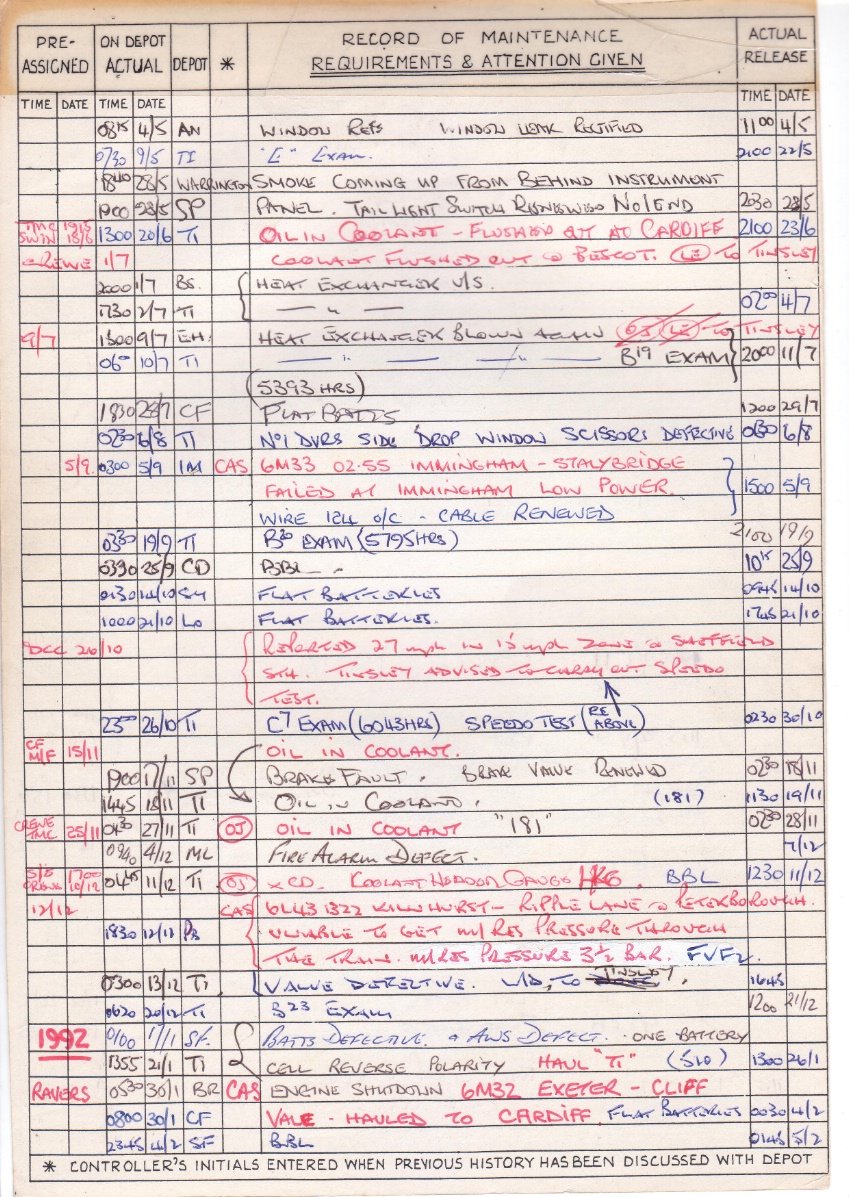 PRE- ON DEPOT DEPOT * RECORD OF MAINTENANCE ACTUAL
ASSIGNED ACTUAL REQUIREMENTS & ATTENTION GIVEN RELEASE
TIME DATE TIME DATE TIME DATE
0815 4/5 AN WINDOW REFS WINDOW LEAK RECTIFIED 1100 4/5
0730 9/5 TI "E" EXAM. 2100 22/5
1840 28/5 WARRINGTON SMOKE COMING UP FROM BEHIND INSTRUMENT
1900 28/5 SP PANEL. TAIL LIGHT SWITCH RENEWED NO1 END 2030 28/5
TMC 1915 SWIN 18/6 1300 20/6 TI OIL IN COOLANT - FLUSHED OUT AT CARDIFF 2100 23/6
CREWE 1/7 COOLANT FLUSHED OUT @ BESCOT. (LE) TO TINSLEY
2000 1/7 BS. HEAT EXCHANGER U/S.
1730 2/7 TI — " — 0200 4/7
9/7 1300 9/7 EH. HEAT EXCHANGER BLOWN AGAIN OJ (LE) TO TINSLEY
0600 10/7 TI — " — — " — B19 EXAM 2000 11/7
(5393 HRS)
1830 28/7 CF FLAT BATTS 1200 29/7
0230 6/8 TI NO1 DVRS SIDE DROP WINDOW SCISSORS DEFECTIVE 0630 6/8
5/9. 0300 5/9 IM CAS 6M33 02.55 IMMINGHAM - STALYBRIDGE
FAILED AT IMMINGHAM LOW POWER. 1500 5/9
WIRE 124 O/C - CABLE RENEWED
0330 19/9 TI B20 EXAM (5795 HRS) 2100 19/9
0390 25/9 CD BBL 1015 25/9
0130 14/10 FLAT BATTERIES 0945 14/10
1000 21/10 LO FLAT BATTERIES. 1745 21/10
DCC 26/10 REPORTED 27 mph IN 15 mph ZONE @ SHEFFIELD
STN. TINSLEY ADVISED TO CARRY OUT SPEEDO
TEST.
2300 26/10 TI C7 EXAM (6043HRS) SPEEDO TEST (RE ABOVE) 0230 30/10
CF M/F 15/11 OIL IN COOLANT.
1900 17/11 SP BRAKE FAULT. BRAKE VALVE RENEWED 0230 18/11
1445 18/11 TI OIL IN COOLANT. (181) 1130 19/11
CREWE TMC 25/11 0430 27/11 TI OJ OIL IN COOLANT "181" 0230 28/11
0940 4/12 ML FIRE ALARM DEFECT. 7/12
1700 10/12 0445 11/12 TI OJ X CD. COOLANT GAUGE BBL 1230 11/12
12/12 CAS 6L43 1322 KILNHURST - RIPPLE LANE @ PETERBOROUGH.
1830 12/12 PB UNABLE TO GET M/RES PRESSURE THROUGH
THE TRAIN. M/RES PRESSURE 3½ BAR. FVF2.
0300 13/12 TI VALVE DEFECTIVE. TO TINSLEY. 1645
0620 20/12 TI B23 EXAM 1200 21/12
1992 0100 1/1 SF. BATTS DEFECTIVE. & AWS DEFECT. ONE BATTERY
1355 21/1 TI CELL REVERSE POLARITY HAUL "TI" (S10) 1300 26/1
RAVERS 0530 30/1 BR CAS ENGINE SHUTDOWN 6M32 EXETER - CLIFF
0800 30/1 CF VALE - HAULED TO CARDIFF. FLAT BATTERIES 0030 4/2
2345 4/2 SF BBL 0145 5/2
* CONTROLLER'S INITIALS ENTERED WHEN PREVIOUS HISTORY HAS BEEN DISCUSSED WITH DEPOT